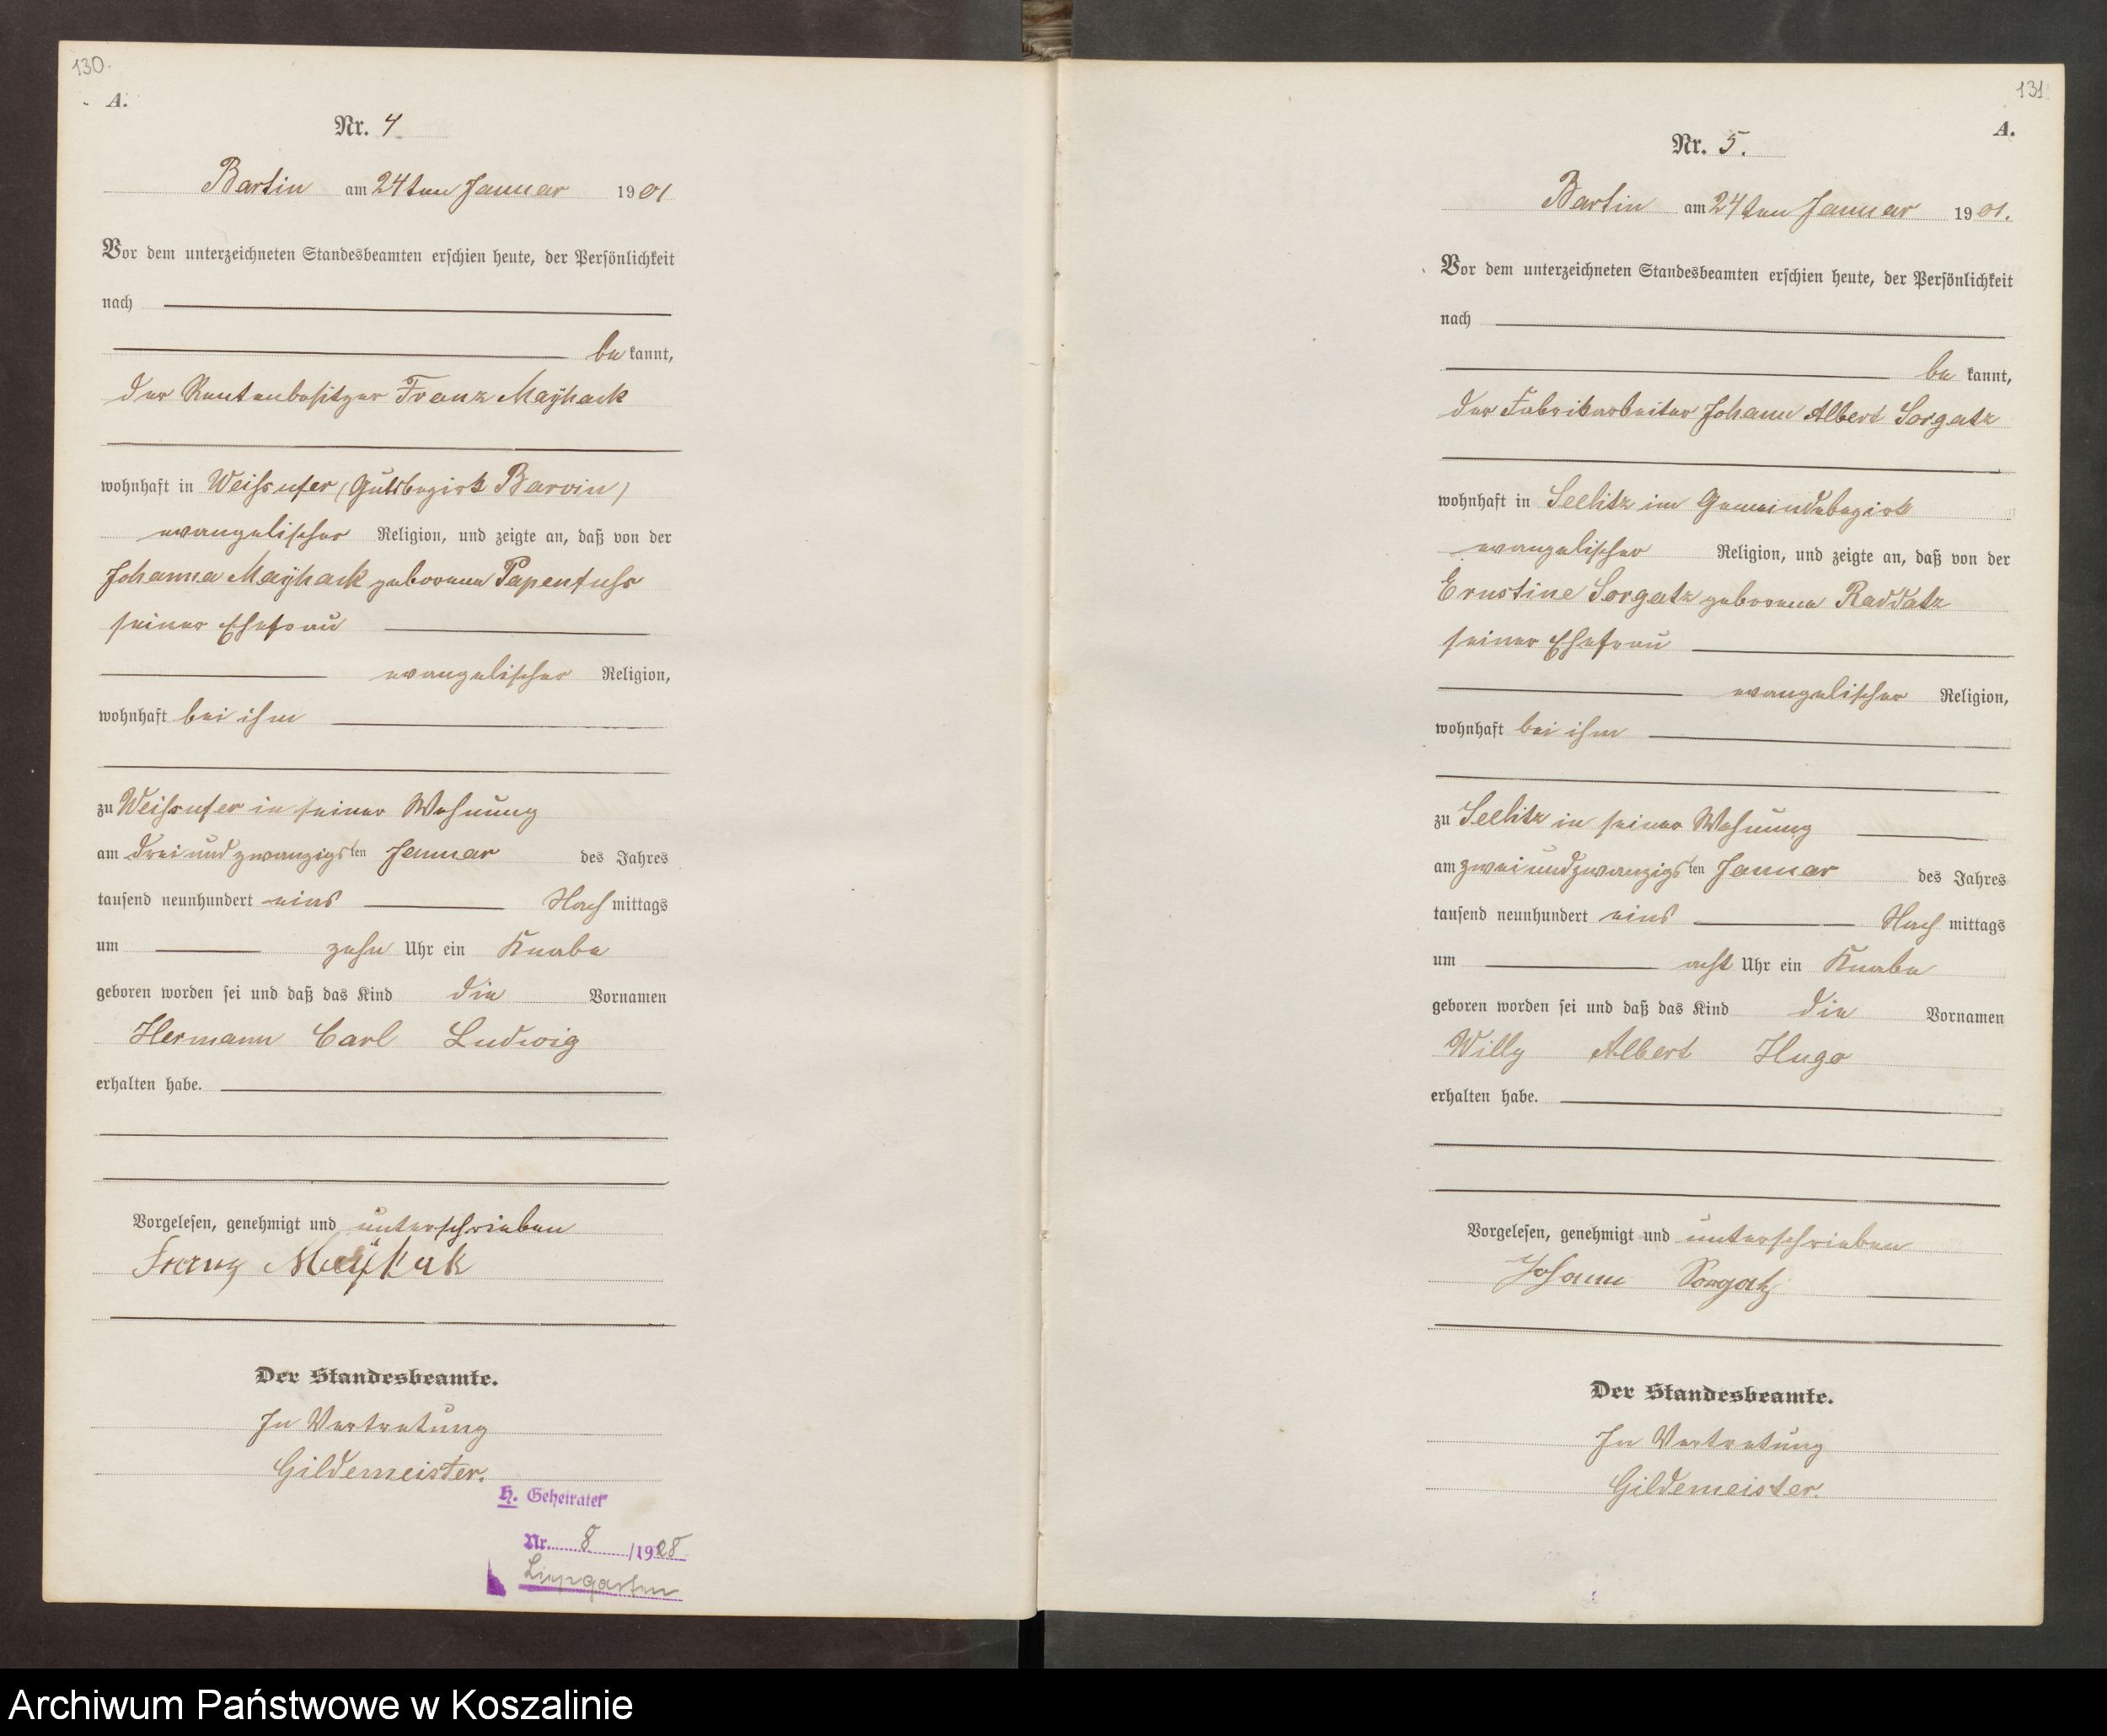 130.
A.
Nr. 4
Bartin am 24ten Januar 1901
Vor dem unterzeichneten Standesbeamten erschien heute, der Persönlichkeit
nach
be kannt,
der Rentenbesitzer Franz Maÿhack
wohnhaft in Weissufer (Gutsbezirk Barvin)
evangelischer Religion, und zeigte an, daß von der
Johanna Maÿhack geborene Papenfuss
seiner Ehefrau
evangelischer Religion,
wohnhaft bei ihm
zu Weissufer in seiner Wohnung
am dreiundzwanzigsten Januar des Jahres
tausend neunhundert eins Nach mittags
um zehn Uhr ein Knabe
geboren worden sei und daß das Kind die Vornamen
Hermann Carl Ludwig
erhalten habe.
Vorgelesen, genehmigt und unterschrieben
Franz Maÿhak
Der Standesbeamte.
In Vertretung
Gildemeister.
H. Geheiratet
Nr. 8 /1928
131.
A.
Nr. 5.
Bartin am 24ten Januar 1901.
Vor dem unterzeichneten Standesbeamten erschien heute, der Persönlichkeit
nach
be kannt,
der Fabrikarbeiter Johann Albert Sorgatz
wohnhaft in Seelitz im Gemeindebezirk
evangelischer Religion, und zeigte an, daß von der
Ernstine Sorgatz geborene Raddatz
seiner Ehefrau
evangelischer Religion,
wohnhaft bei ihm
zu Seelitz in seiner Wohnung
am zweiundzwanzigsten Januar des Jahres
tausend neunhundert eins Nach mittags
um acht Uhr ein Knabe
geboren worden sei und daß das Kind die Vornamen
Willy Albert Hugo
erhalten habe.
Vorgelesen, genehmigt und unterschrieben
Johann Sorgatz
Der Standesbeamte.
In Vertretung
Gildemeister.
Archiwum Państwowe w Koszalinie